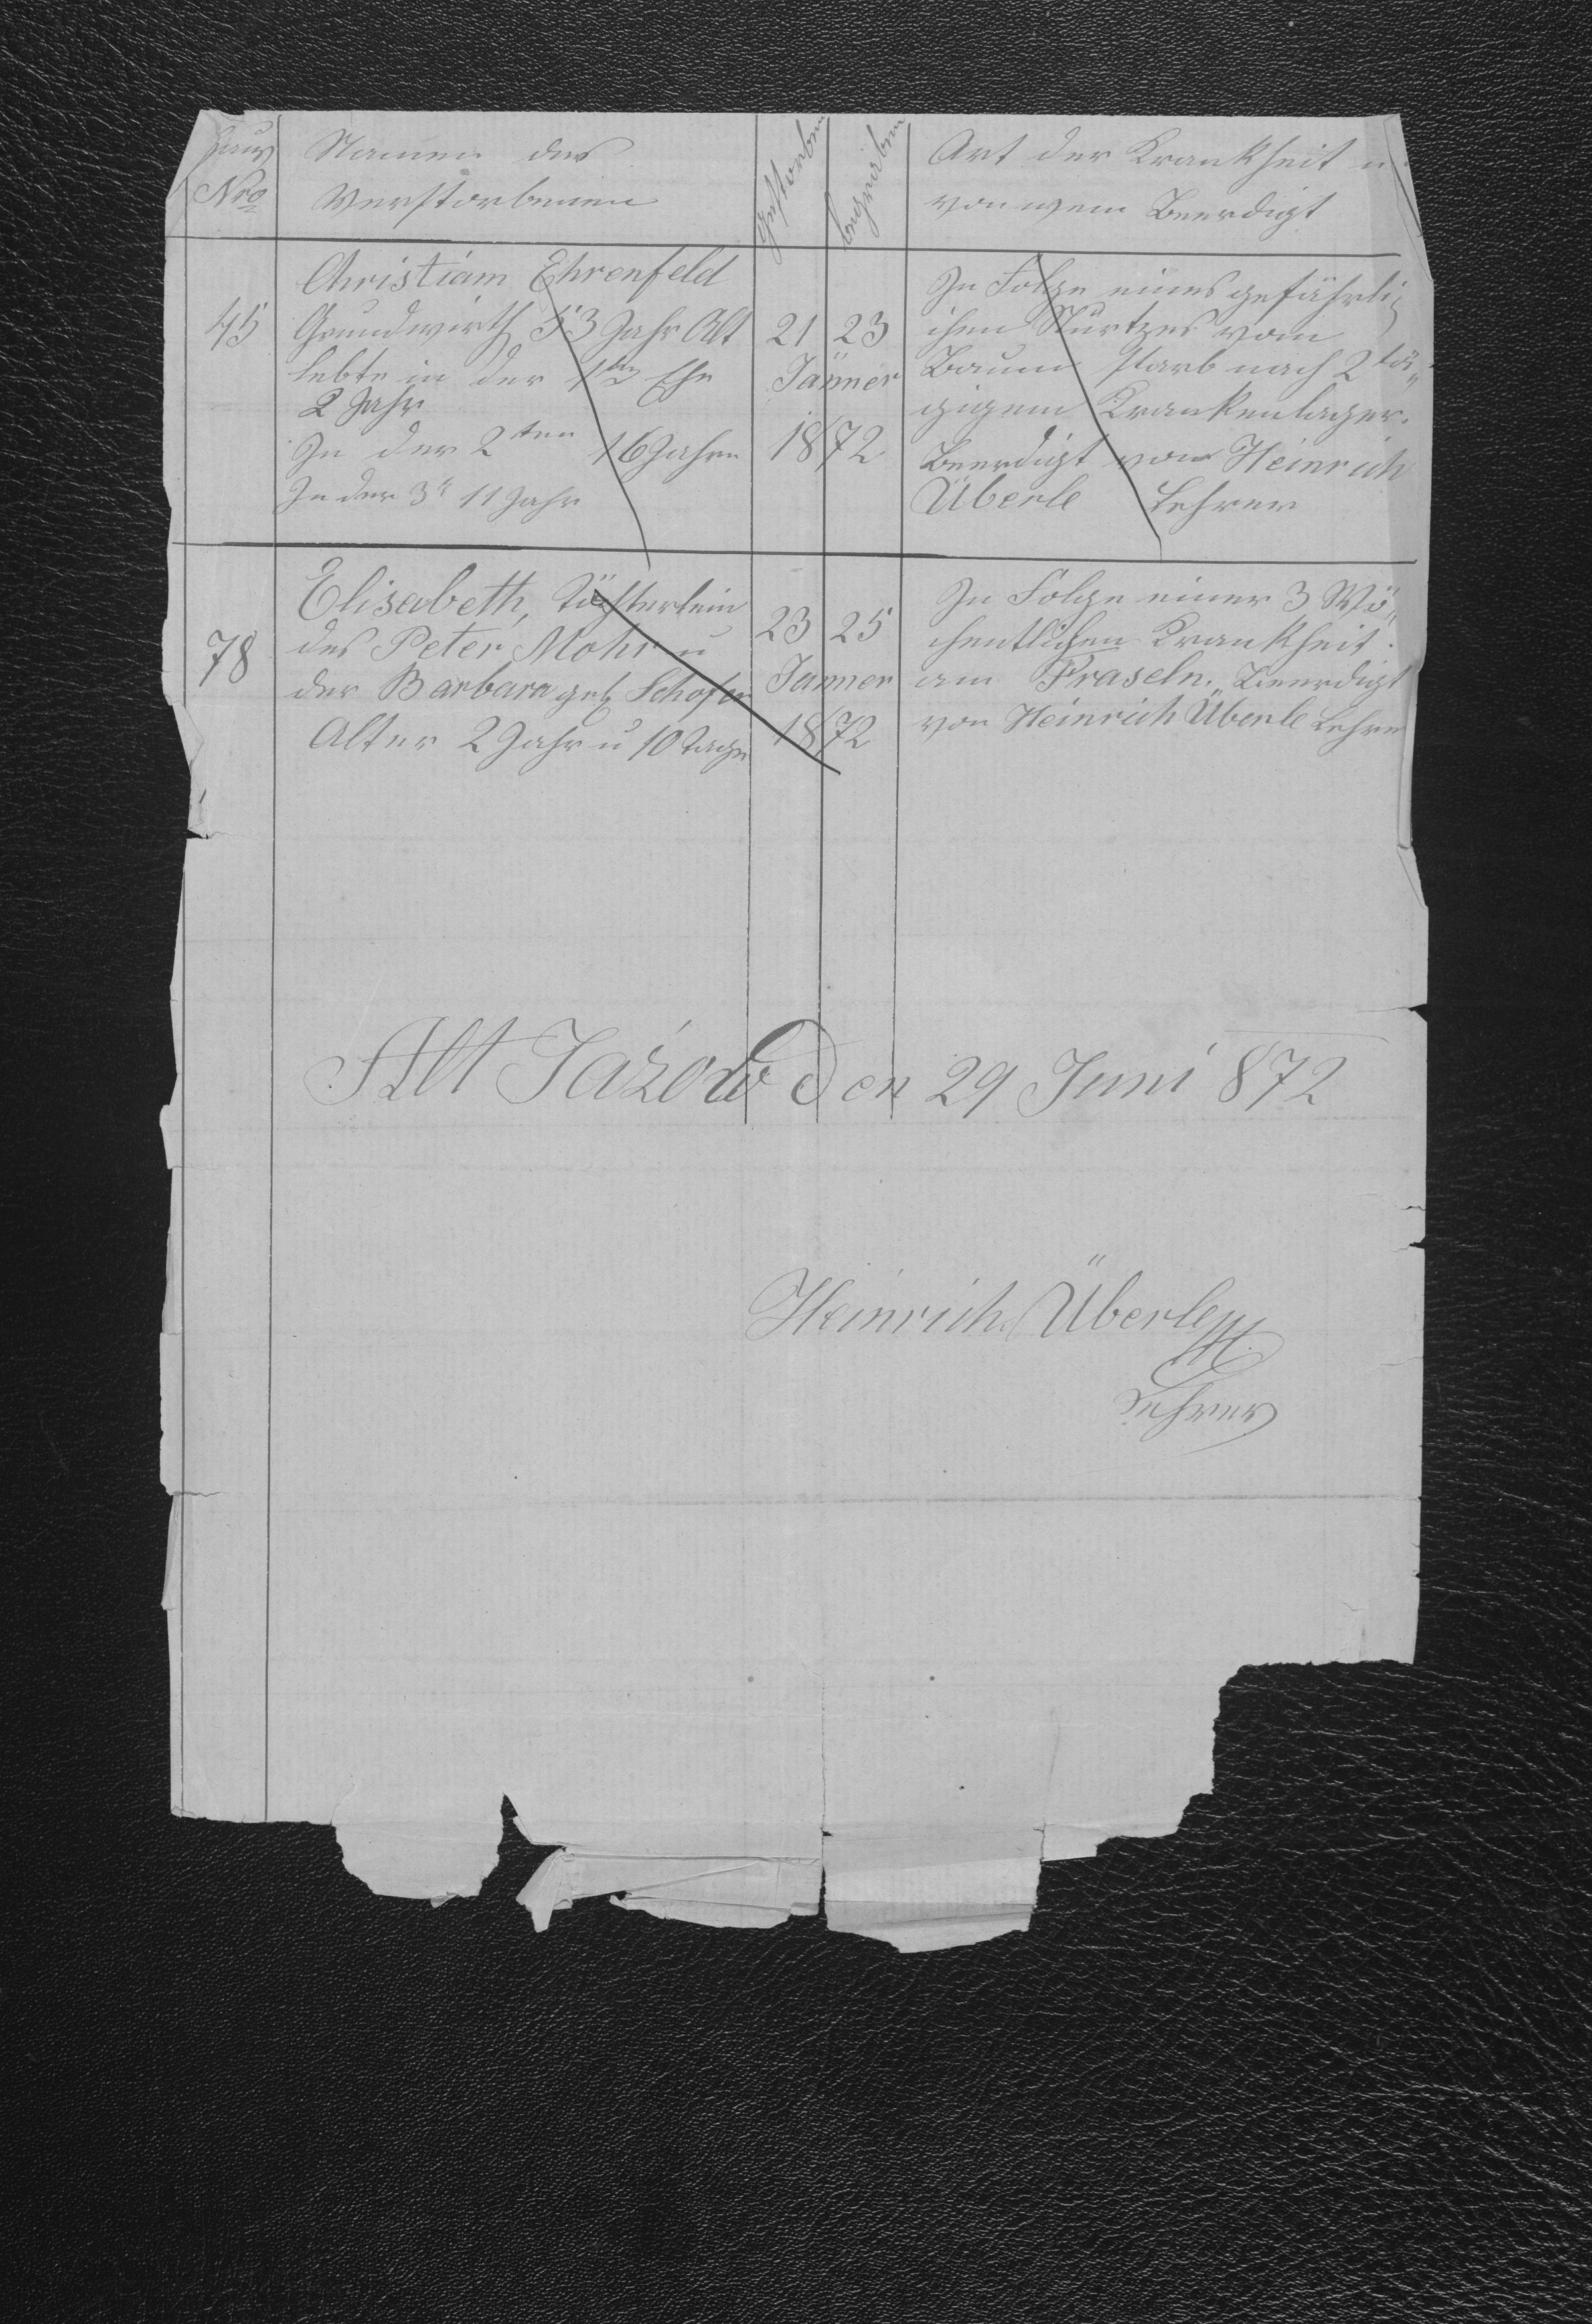 Haus
Nro
Namen des
Verstorbenen
gestorben
begraben
Art der Krankheit u
von wem Beerdigt
45
Christiam Ehrenfeld
Grundwirth 53 Jahr Alt
lebte in der 1ten Ehe
2 Jahr
In der 2ten 16 Jahre
In der 3t 11 Jahr
21 23
Jänner
1872
In Folge eines gefährli
chen Sturtzes vom
Baum starb nach 2 tä„
gigem Krankenlager.
Beerdigt von Heinrich
Überle Lehrer
78
Elisabeth, Töchterlein
des Peter Mohr u
der Barbara geb Schofer
Alter 2 Jahr u 10 Tage
23 25
Janner
1872
In Folge einer 3 Wö„
chentlichen Krankheit
am Fraseln. Beerdigt
von Heinrich Überle Lehrer
Alt Jažow den 29 Juni 872
Heinrich Überle
Lehrer